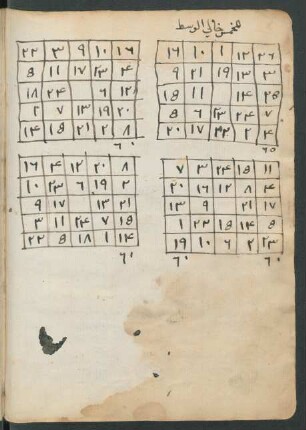 مخمس خالي الوسط
٢٦ ١٢ ١ ١٠ ١٦
٣ ١٣ ١٩ ٢١ ٩
٢٥ ١٤ ١١ ١٥
٧ ٢٤ ٢٣ ٦ ٥
٤ ٢ ٢٢ ١٧ ٢٠
٦٥
١٦ ١٠ ٩ ٣ ٢٢
٤ ٢٣ ١٧ ١١ ٥
١٢ ٦ ٢٤ ١٨
٢٠ ١٩ ١٣ ٧ ١
٨ ٢ ٢١ ١٥ ١٤
٦٠
١١ ١٥ ٢٤ ٣ ٧
٤ ٨ ١٢ ١٦ ٢٠
١٧ ٢١ ٩ ١٣
٥ ١٤ ١٨ ٢٢ ١
٢٣ ٢ ٦ ١٠ ١٩
٦٠ ٦٠
٨ ٢٠ ١٢ ٤ ١٦
٢ ١٩ ٦ ٢٣ ١٠
٢١ ١٣ ١٧ ٩
١٥ ٧ ٢٤ ١١ ٣
١٤ ١ ١٨ ٥ ٢٢
٦٠